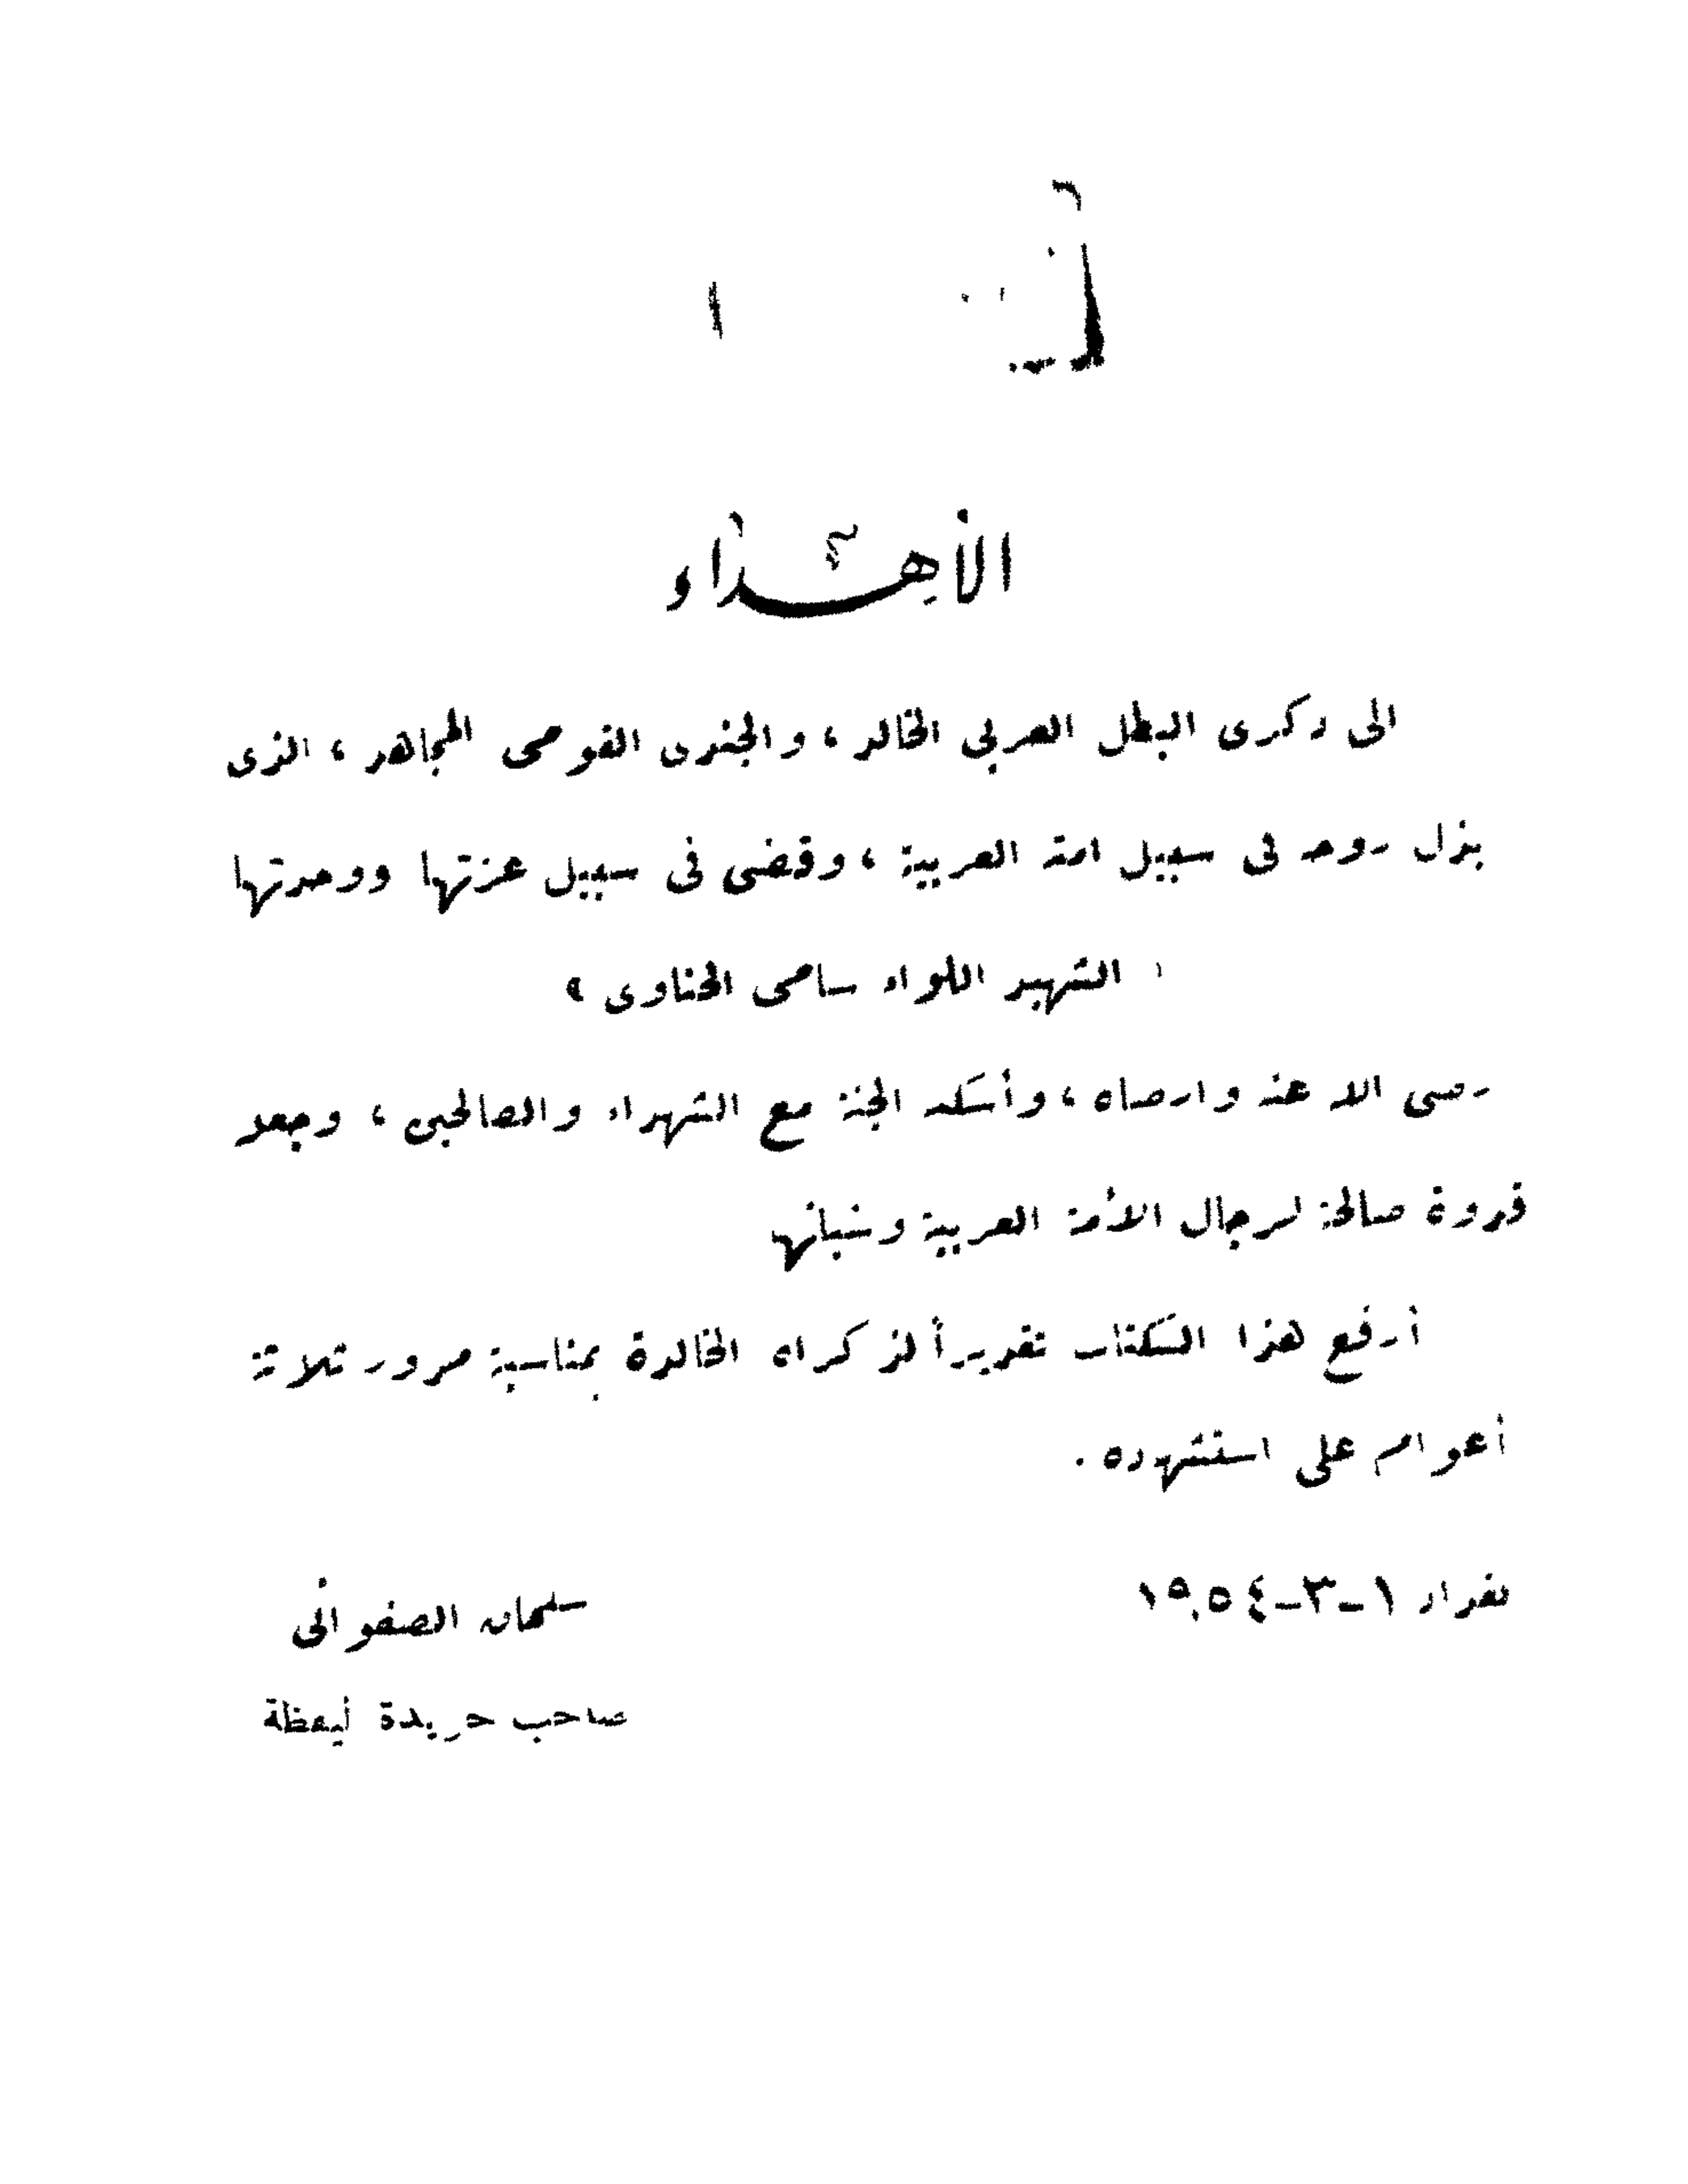 الأهداء
الى ذكرى البطل العربى الخالد ، والجندى القومى المجاهد ، الذى
بذل روحه فى سبيل امته العربية ، وقضى فى سبيل عزتها ووحدتها
« الشهيد اللواء سامى الحناوى »
رضى الله عنه وارضاه ، وأسكنه الجنة مع الشهداء والصالحين ، وجعله
قدوة صالحة لرجال الأمة العربية وشبانها
أرفع هذا الكتاب تقديراً لذكراه الخالدة بمناسبة مرور ثلاثة
أعوام على استشهاده .
بغداد ١-٣-١٩٥٤
سلمان الصفوانى
صاحب جريدة اليقظة